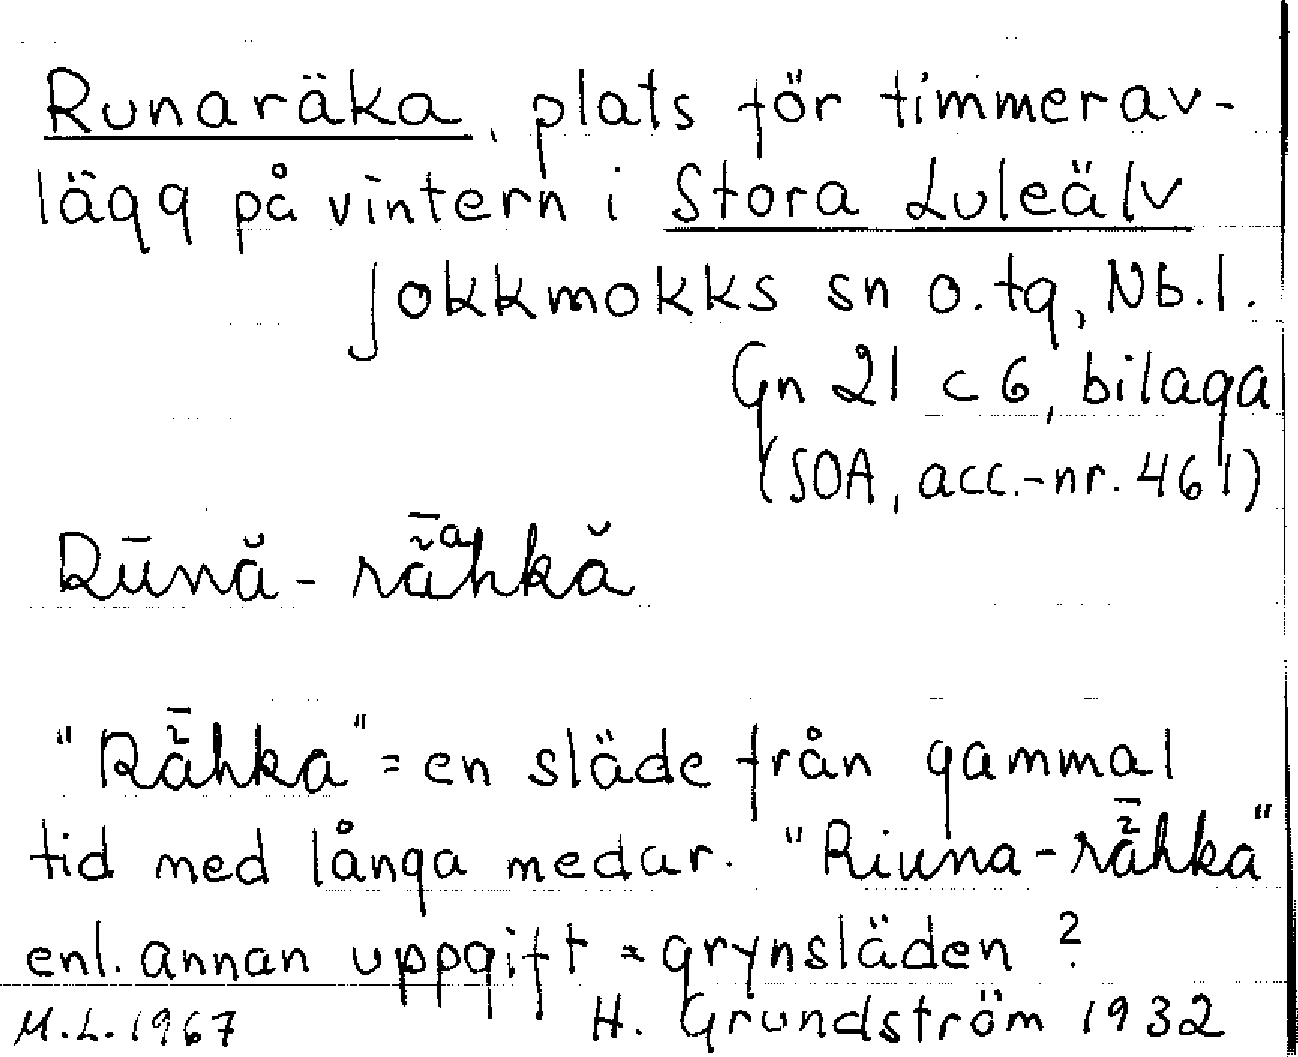 Runaräka, plats för timmerav-
lägg på vintern i Stora Luleälv
Jokkmokks sn o. tg, Nb. l.
Gn 21 c 6, bilaga
(SOA, acc.-nr. 461)
Rūnă - rǟᵃhkă
"Rǟhka" = en släde från gammal
tid med långa medar. "Riuna-rǟhka"
enl. annan uppgift = grynsläden?
M.L. 1967 H. Grundström 1932